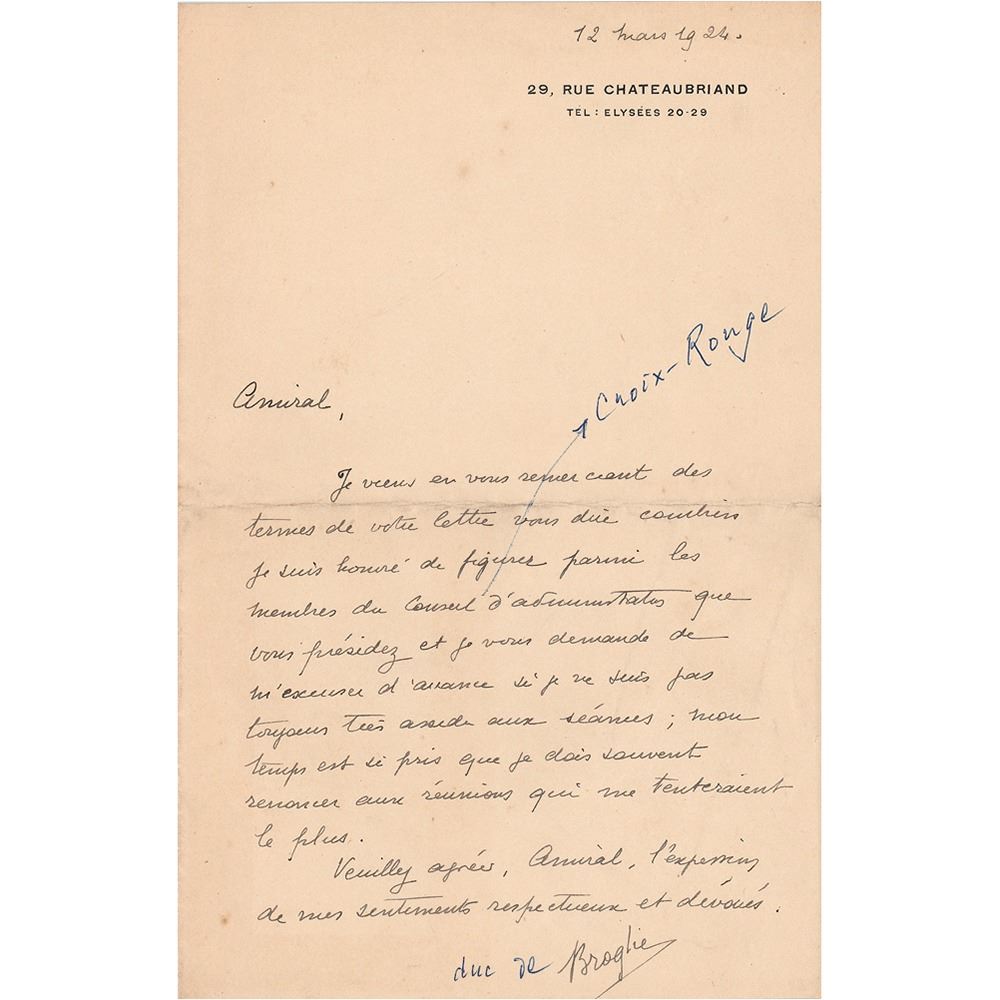 12 mars 1924.
29, RUE CHATEAUBRIAND
TÉL : ELYSÉES 20-29
Croix-Rouge
Amiral,
Je viens en vous remerciant des
termes de votre lettre vous dire combien
je suis honoré de figurer parmi les
membres du Conseil d'administration que
vous présidez et je vous demande de
m'excuser d'avance si je ne suis pas
toujours très assidu aux séances ; mon
temps est si pris que je dois souvent
renoncer aux réunions qui me tenteraient
le plus.
Veuillez agréer, Amiral, l'expression
de mes sentiments respectueux et dévoués.
duc de Broglie